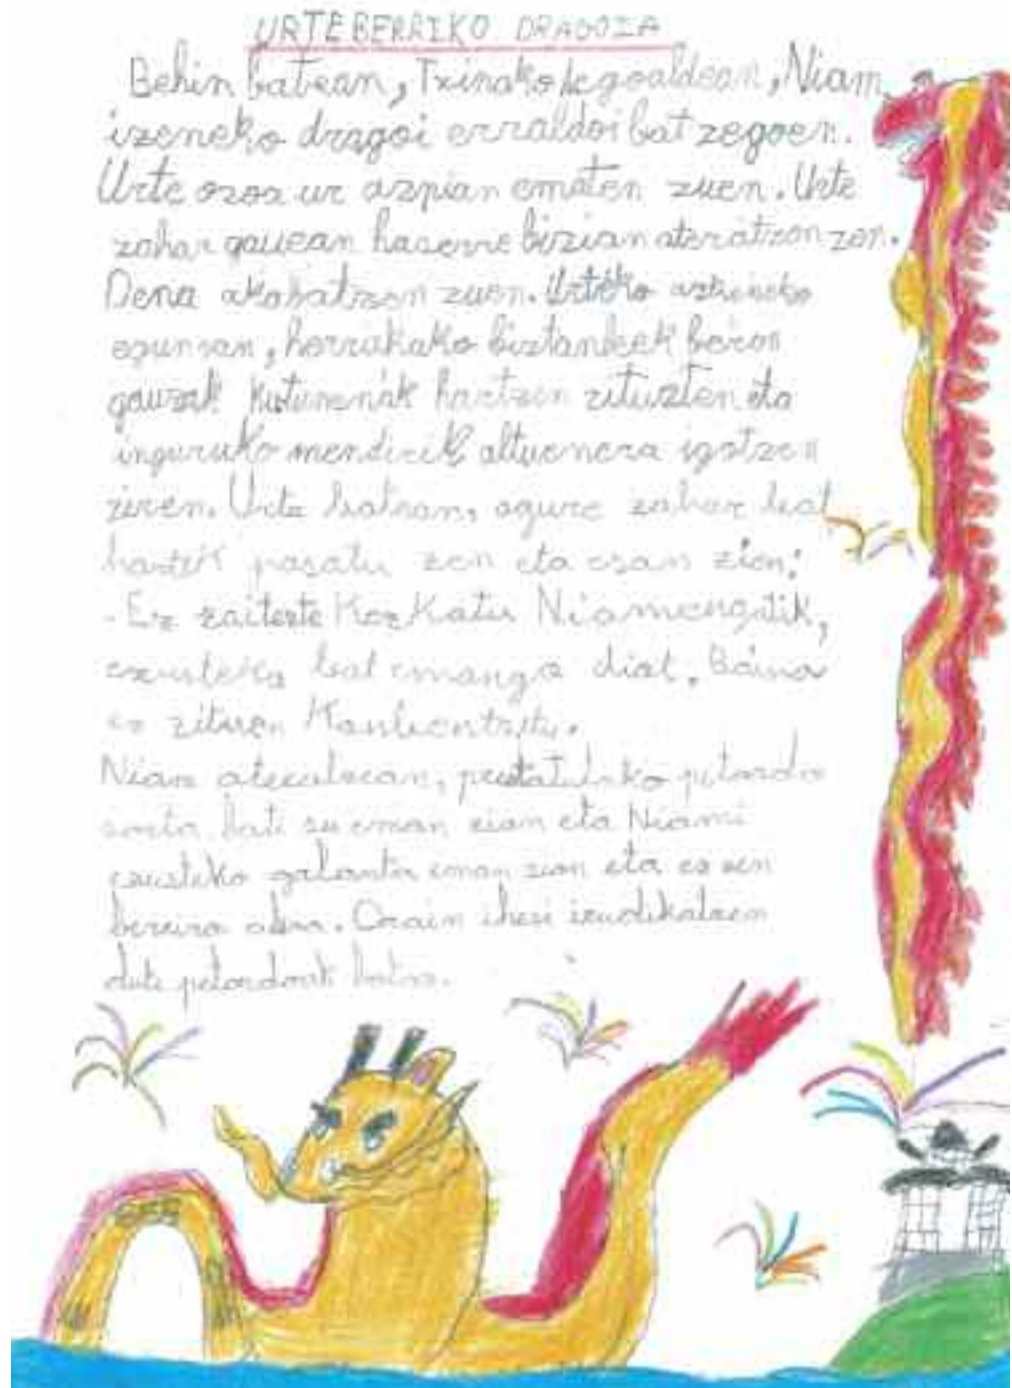 URTEBERRIKO DRAGOIA
Behin batean, Txinako hegoaldean, Niam
izeneko dragoi erraldoi bat zegoen.
Urte osoa ur azpian ematen zuen. Urte
zahar gauean haserre bizian ateratzen zen.
Dena akabatzen zuen. Urteko azkeneko
egunean, herrikako biztanleek beron
gauzak kutunenak hartzen zituzten eta
inguruko mendirik altuenera igotzen
ziren. Urte batean, agure zahar bat
hartek pasatu zen eta esan zien:
- Ez zaitezte kezkatu Niamengatik,
ezusteko bat emango diot. Baina
ez zituen konbentzitu.
Niam ateratzean, prestatutako petardo
sorta bati su eman zion eta Niami
ezusteko galanta eman zion eta ez zen
berriro atera. Orain ihesi irudikatzen
dute petardoak botaz.